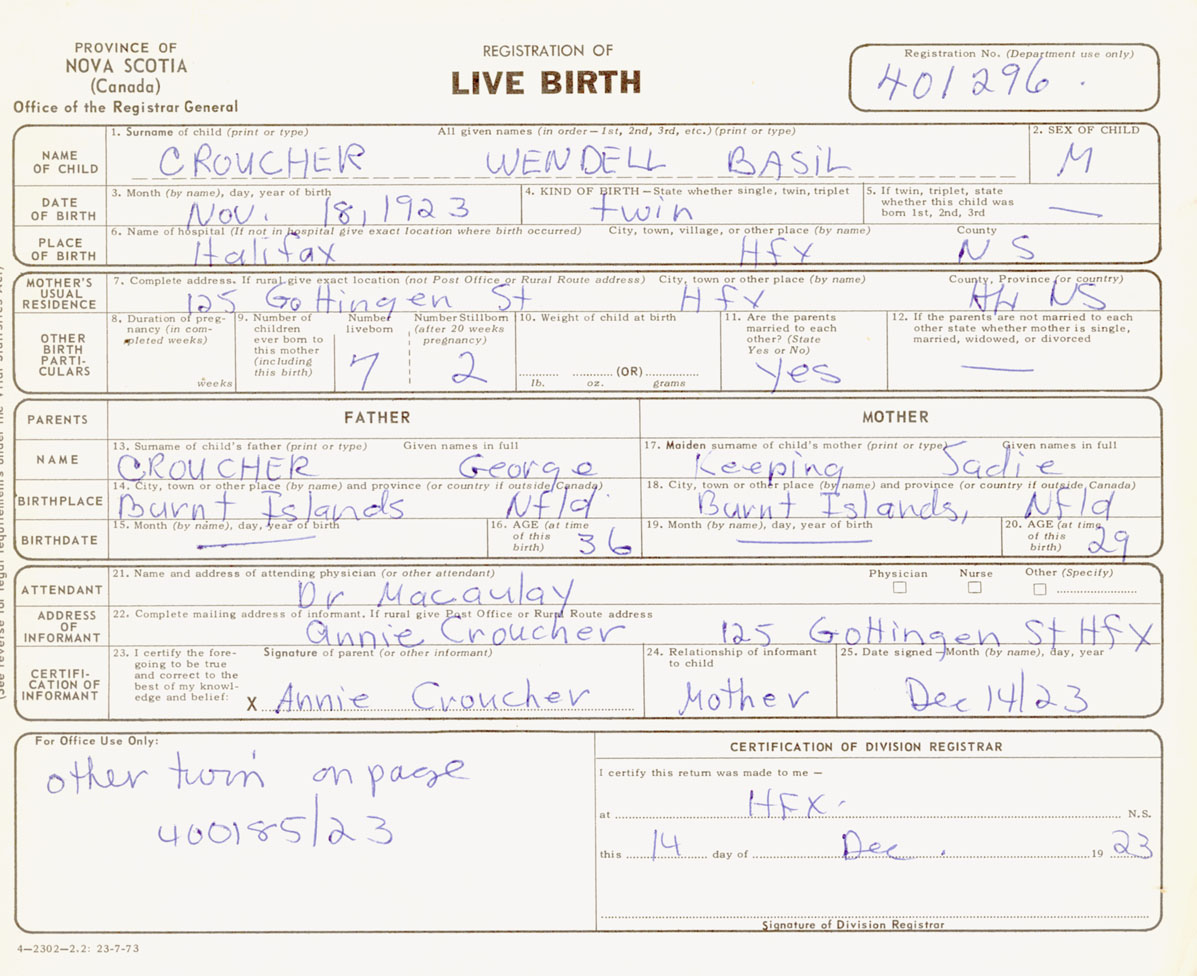 PROVINCE OF
NOVA SCOTIA
(Canada)
Office of the Registrar General
REGISTRATION OF
LIVE BIRTH
Registration No. (Department use only)
401296.
NAME OF CHILD
1. Surname of child (print or type) All given names (in order—1st, 2nd, 3rd, etc.) (print or type)
CROUCHER WENDELL BASIL
2. SEX OF CHILD
M
DATE OF BIRTH
3. Month (by name), day, year of birth
Nov. 18, 1923
4. KIND OF BIRTH—State whether single, twin, triplet
twin
5. If twin, triplet, state
whether this child was
born 1st, 2nd, 3rd
—
PLACE OF BIRTH
6. Name of hospital (If not in hospital give exact location where birth occurred) City, town, village, or other place (by name) County
Halifax Hfx N S
MOTHER'S USUAL RESIDENCE
7. Complete address. If rural give exact location (not Post Office or Rural Route address) City, town or other place (by name) County, Province (or country)
125 Gottingen St Hfx Hx NS
OTHER BIRTH PARTI-CULARS
8. Duration of preg-
nancy (in com-
pleted weeks)
weeks
9. Number of
children
ever born to
this mother
(including
this birth)
Number
liveborn
7
Number Stillborn
(after 20 weeks
pregnancy)
2
10. Weight of child at birth
(OR)
lb. oz. grams
11. Are the parents
married to each
other? (State
Yes or No)
Yes
12. If the parents are not married to each
other state whether mother is single,
married, widowed, or divorced
—
PARENTS FATHER MOTHER
NAME
13. Surname of child's father (print or type) Given names in full
CROUCHER George
17. Maiden surname of child's mother (print or type) Given names in full
Keeping Sadie
BIRTHPLACE
14. City, town or other place (by name) and province (or country if outside Canada)
Burnt Islands Nfld.
18. City, town or other place (by name) and province (or country if outside Canada)
Burnt Islands, Nfld
BIRTHDATE
15. Month (by name), day, year of birth
—
16. AGE (at time
of this
birth)
36
19. Month (by name), day, year of birth
—
20. AGE (at time
of this
birth)
29
ATTENDANT
21. Name and address of attending physician (or other attendant)
Dr Macaulay
Physician Nurse Other (Specify)
ADDRESS OF INFORMANT
22. Complete mailing address of informant. If rural give Post Office or Rural Route address
Annie Croucher 125 Gottingen St Hfx
CERTIFI-CATION OF INFORMANT
23. I certify the fore-
going to be true
and correct to the
best of my knowl-
edge and belief:
Signature of parent (or other informant)
X Annie Croucher
24. Relationship of informant
to child
Mother
25. Date signed—Month (by name), day, year
Dec 14/23
For Office Use Only:
other twin on page
400185/23
CERTIFICATION OF DIVISION REGISTRAR
I certify this return was made to me —
at HFX. N.S.
this 14 day of Dec. 19 23
Signature of Division Registrar
4—2302—2.2: 23-7-73